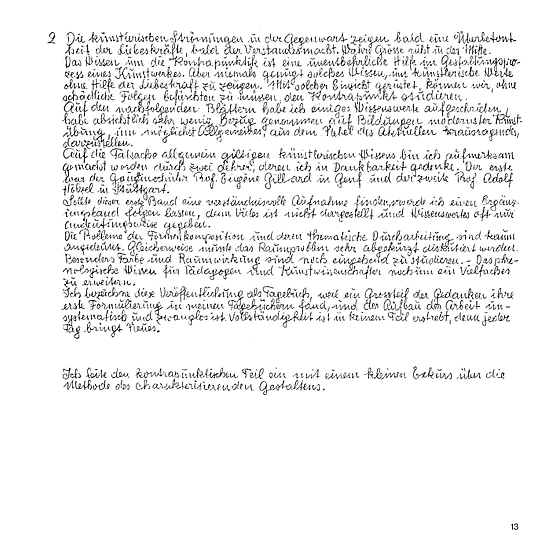 2 Die künstlerischen Strömungen in der Gegenwart zeigen bald eine Überbetont-
heit der Liebeskräfte, bald der Verstandesmacht. Wahre Grösse ruht in der Mitte.
Das Wissen um die Kontrapunktik ist eine unentbehrliche Hilfe im Gestaltungspro-
zess eines Kunstwerkes. Aber niemals genügt solches Wissen, um künstlerische Werte
ohne Hilfe der Liebeskraft zu zeugen. Mit solcher Einsicht gerüstet, können wir, ohne
schädliche Folgen befürchten zu müssen, den Kontrapunkt studieren.
Auf den nachfolgenden Blättern habe ich einiges Wissenswerte aufgeschrieben,
habe absichtlich sehr wenig Bezug genommen auf Bildungen modernster Kunst-
übung, um möglichst Allgemeines, aus dem Nebel des Aktuellen herausragendes,
darzustellen.
Auf die Tatsache allgemein gültigen künstlerischen Wissens bin ich aufmerksam
gemacht worden durch zwei Lehrer, deren ich in Dankbarkeit gedenke. Der erste
war der Gauginschüler Prof. Eugène Gilliard in Genf und der zweite Prof. Adolf
Hölzel in Stuttgart.
Sollte dieser erste Band eine verständnisvolle Aufnahme finden, werde ich einen Ergänz-
ungsband folgen lassen, denn Vieles ist nicht dargestellt und Wissenswertes oft nur
andeutungsweise gegeben.
Die Probleme der Formenkomposition und deren thematische Durcharbeitung sind kaum
angedeutet. Gleicherweise müsste das Raumproblem sehr abgekürzt diskutiert werden.
Besonders Farbe und Raumwirkung sind noch eingehend zu studieren. - Das phre-
nologische Wissen für Pädagogen und Kunstwissenschafter noch um ein Vielfaches
zu erweitern.
Ich bezeichne diese Veröffentlichung als Tagebuch, weil ein Grossteil der Gedanken ihre
erste Formulierung in meinen Tagebüchern fand, und der Aufbau der Arbeit un-
systematisch und zwanglos ist. Vollständigkeit ist in keinem Teil erstrebt, denn jeder
Tag bringt Neues.
Ich leite den kontrapunktischen Teil ein mit einem kleinen Exkurs über die
Methode des charakterisierenden Gestaltens.
13